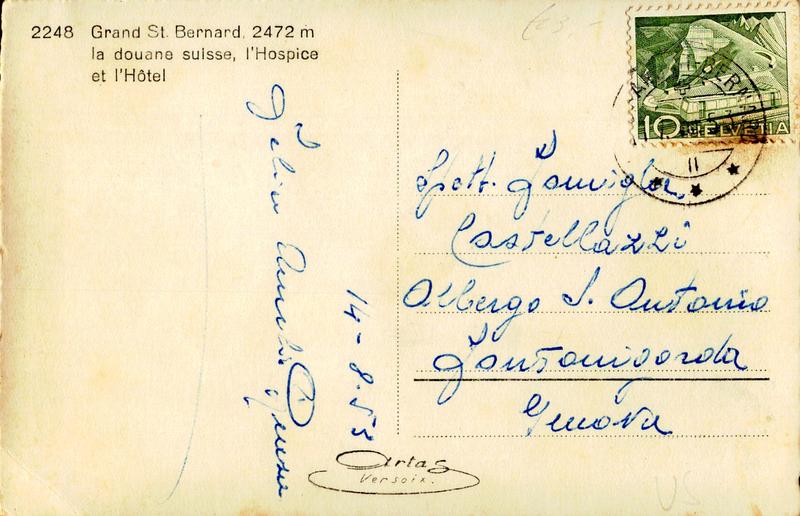 2248 Grand St. Bernard, 2472 m
la douane suisse, l'Hospice
et l'Hôtel
10 HELVETIA
BERNARD
II
Spett. Famiglia
Castellazzi
Albergo S. Antonio
Fontanigorda
Genova
14-8.53
Artas
Versoix.